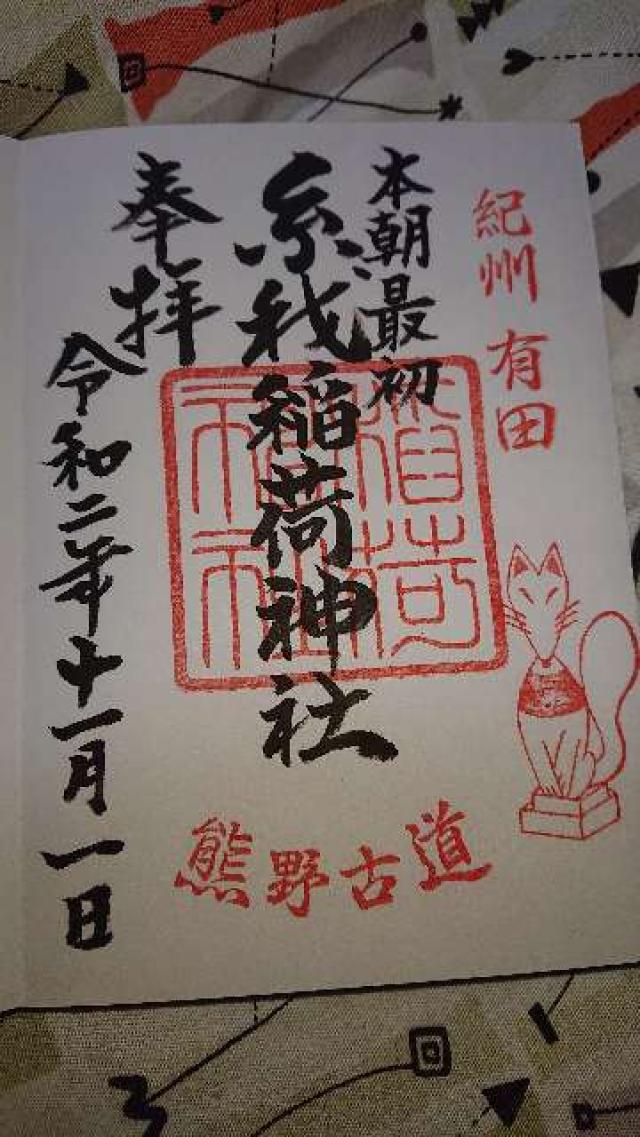 紀州 有田
本朝最初
糸我稲荷神社
奉拝
令和二年十一月一日
稲荷
神社
熊野古道